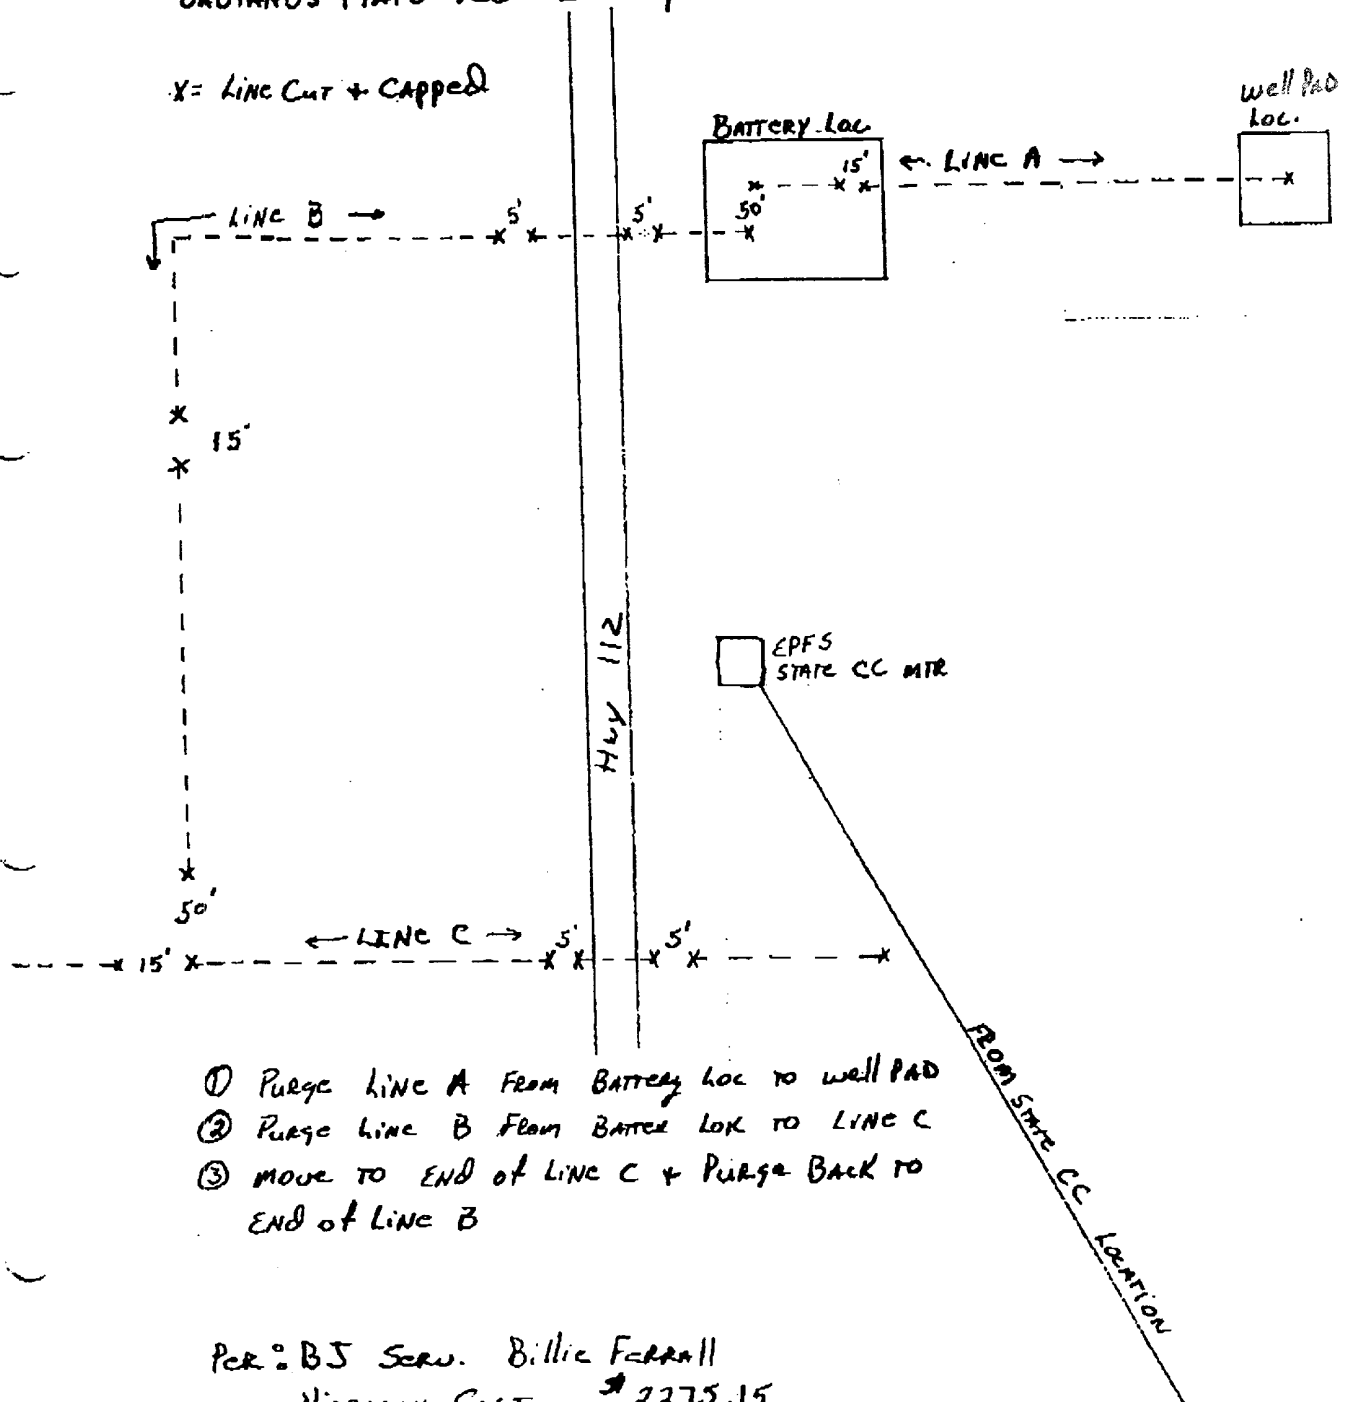 X = Line Cut + Capped
Well Pad
Loc.
Battery Loc
← Line A →
15'
50'
Line B →
5'
5'
15'
Hwy 112
EPFS
State CC MTR
50'
← Line C →
5'
5'
15'
From State CC Location
① Purge Line A From Battery Loc to Well Pad
② Purge Line B From Batter Lok to Line C
③ Move to End of Line C + Purge Back to
End of Line B
Per: BJ Serv. Billie Ferrall
$ 2275.15